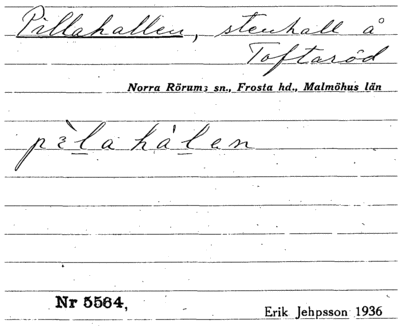 Pillahallen, stenhall å
Toftaröd
Norra Rörums sn., Frosta hd., Malmöhus län
pèlahàlen
Nr 5564,
Erik Jehpsson 1936